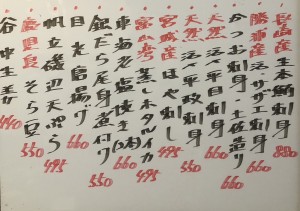 生本鮪刺身 880
勝浦産 活サザエ刺
かつお刺身・土佐造り 660
天然 活〆平目刺身 660
天然 活〆平政刺身 660
宮城産 ほや刺し 495
富山湾産 蒸しホタルイカ 495
東海老塩焼き(有) 660
銀だら尾身煮付け 550
目光唐揚げ 660
帆立磯辺天ぷら 495
鹿児島産 そら豆 550
谷中生姜 440